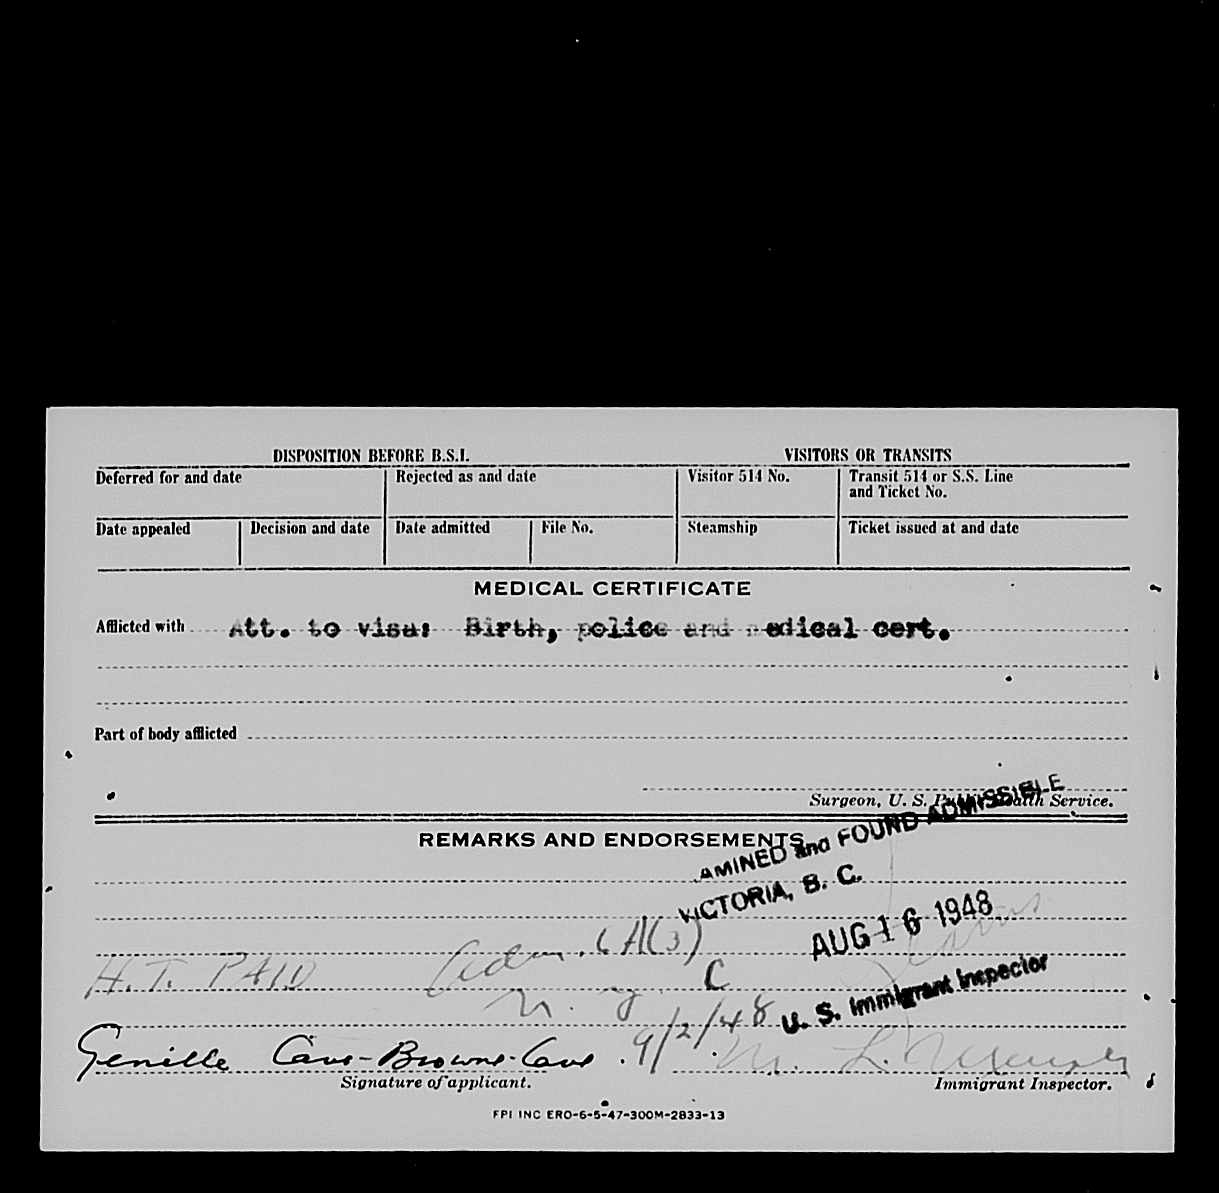 DISPOSITION BEFORE B.S.I. VISITORS OR TRANSITS
Deferred for and date Rejected as and date Visitor 514 No. Transit 514 or S.S. Line
and Ticket No.
Date appealed Decision and date Date admitted File No. Steamship Ticket issued at and date
MEDICAL CERTIFICATE
Afflicted with Att. to visa: Birth, police and medical cert.
Part of body afflicted
Surgeon, U. S. Public Health Service.
REMARKS AND ENDORSEMENTS
AMINED and FOUND ADMISSIBLE
VICTORIA, B. C.
AUG 16 1948
U. S. Immigrant Inspector
H.T. PAID Adm. 6A(3)
N.Y. C
9/2/48
Genille Cave-Browne-Cave M. L.
Signature of applicant. Immigrant Inspector.
FPI INC ERO-6-5-47-300M-2833-13